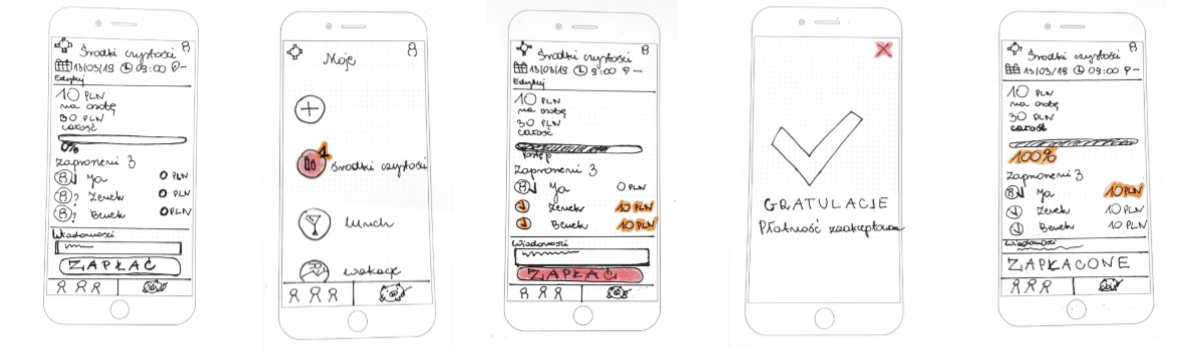 Środki czystości
13/03/19 09:00
Edytuj
10 PLN
na osobę
30 PLN
całość
0%
Zaproszeni 3
Ja 0 PLN
Zenek 0 PLN
Benek 0 PLN
Wiadomości
ZAPŁAĆ
Moje
1
Środki czystości
lunch
wakacje
Środki czystości
13/03/19 9:00
Edytuj
10 PLN
na osobę
30 PLN
całość
Zaproszeni 3
Ja 0 PLN
Zenek 10 PLN
Benek 10 PLN
Wiadomości
ZAPŁAĆ
GRATULACJE
Płatność zaakceptowana
Środki czystości
13/03/19 09:00
Edytuj
10 PLN
na osobę
30 PLN
całość
100%
Zaproszeni 3
Ja 10 PLN
Zenek 10 PLN
Benek 10 PLN
Wiadomości
ZAPŁACONE